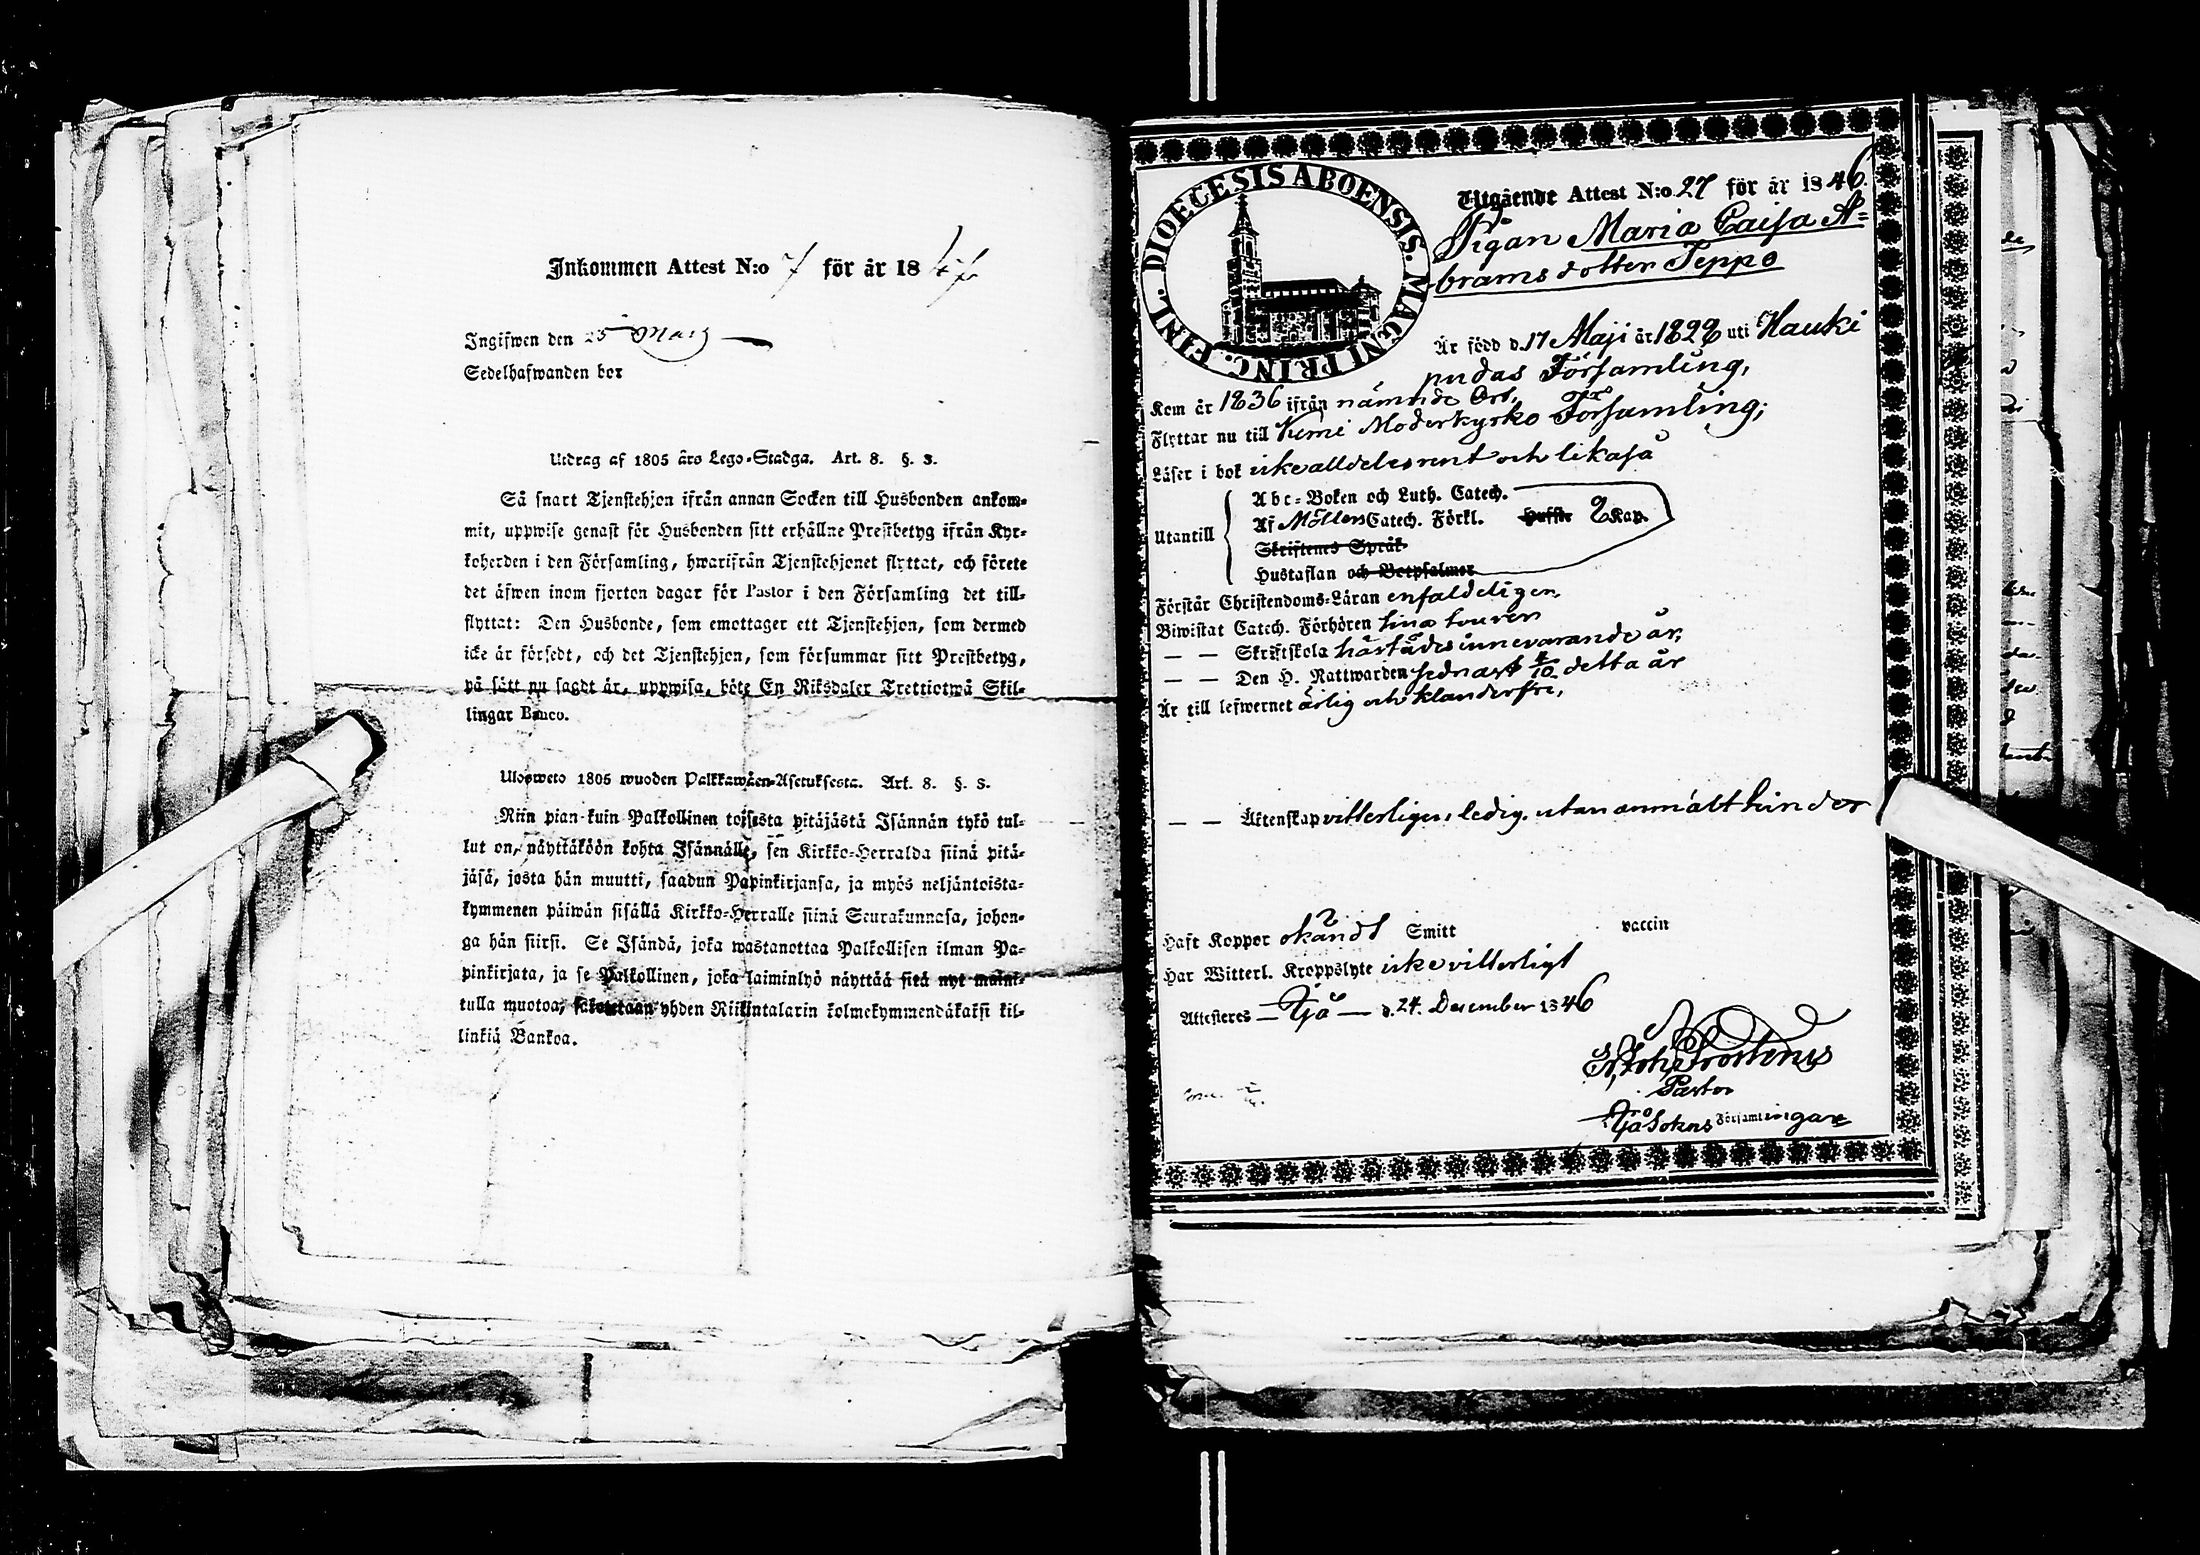 Inkommen Attest N:o 7 för år 1847
Ingifwen den 25 Mars
Sedelhafwanden bor
Utdrag af 1805 års Lego-Stadga. Art. 8. §. 3.
Så snart Tjenstehjon ifrån annan Socken till Husbonden ankom-
mit, uppwise genast för Husbonden sitt erhållne Prestbetyg ifrån Kyr-
koherden i den Församling, hwarifrån Tjenstehjonet flyttat, och förete
det äfwen inom fjorton dagar för Pastor i den Församling det till-
flyttat: Den Husbonde, som emottager ett Tjenstehjon, som dermed
icke är försedt, och det Tjenstehjon, som försummar sitt Prestbetyg,
på sätt nu sagdt är, uppwisa, böte En Riksdaler Trettiotwå Skil-
lingar Banco.
Ulosweto 1805 wuoden Palkkawäen-Asetuksesta. Art. 8. §. 3.
Niin pian kuin Palkollinen toisesta pitäjästä Isännän tykö tul-
lut on, näyttäköön kohta Isännälle, sen Kirkko-Herralda siinä pitä-
jäsä, josta hän muutti, saadun Papinkirjansa, ja myös neljäntoista-
kymmenen päiwän sisällä Kirkko-Herralle siinä Seurakunnasa, johon-
ga hän siirsi. Se Isändä, joka wastanottaa Palkollisen ilman Pa-
pinkirjata, ja se Palkollinen, joka laiminlyö näyttää sitä nyt maini-
tulla muotoa, sakoitetaan yhden Riikintalarin kolmekymmendäkaksi kil-
linkiä Bankoa.
DIOECESIS ABOENSIS. MAGNI PRINC. FINL.
Utgående Attest N:o 27 för år 1846.
Pigan Maria Caisa A=
bramsdotter Teppo
Är född d. 17 Maji år 1828 uti Hauki
pudas Församling,
Kom år 1836 ifrån nämnde Ort,
Flyttar nu till Kemi Moderkyrko Församling;
Läser i bok icke alldeles rent och likaså
Utantill
Abc-Boken och Luth. Catech.
Af Möllers Catech. Förkl. Hufst. 2 Kap.
Skriftenes Språk
Hustaflan och Botpsalmer
Förstår Christendoms-Läran enfaldeligen
Biwistat Catech. Förhören sina touren
— — Skriftskola härstädes innevarande år,
— — Den H. Nattwarden sednast 4/10 detta år
Är till lefwernet ärlig och klanderfri,
— — Äktenskap vitterligen ledig utan anmält hinder
Haft Koppor okändt Smitt vaccin
Har Witterl. Kroppslyte icke vitterligt
Attesteras — Ijå — d. 24. December 1846
Pastor
Ijå Sokns Församlingar